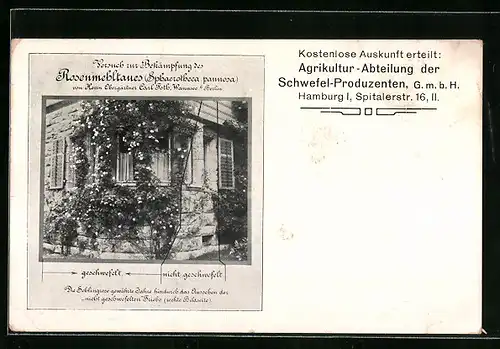 Versuch zur Bekämpfung des
Rosenmehltaues (Sphaerotheca pannosa)
von Herrn Obergärtner Carl Foth, Wannsee b/Berlin
geschwefelt
nicht geschwefelt
Die Schlingrose gewährte Jahre hindurch das Aussehen der
„nicht geschwefelten“ Triebe (rechte Bildseite).
Kostenlose Auskunft erteilt:
Agrikultur-Abteilung der
Schwefel-Produzenten, G. m. b. H.
Hamburg I, Spitalerstr. 16, II.